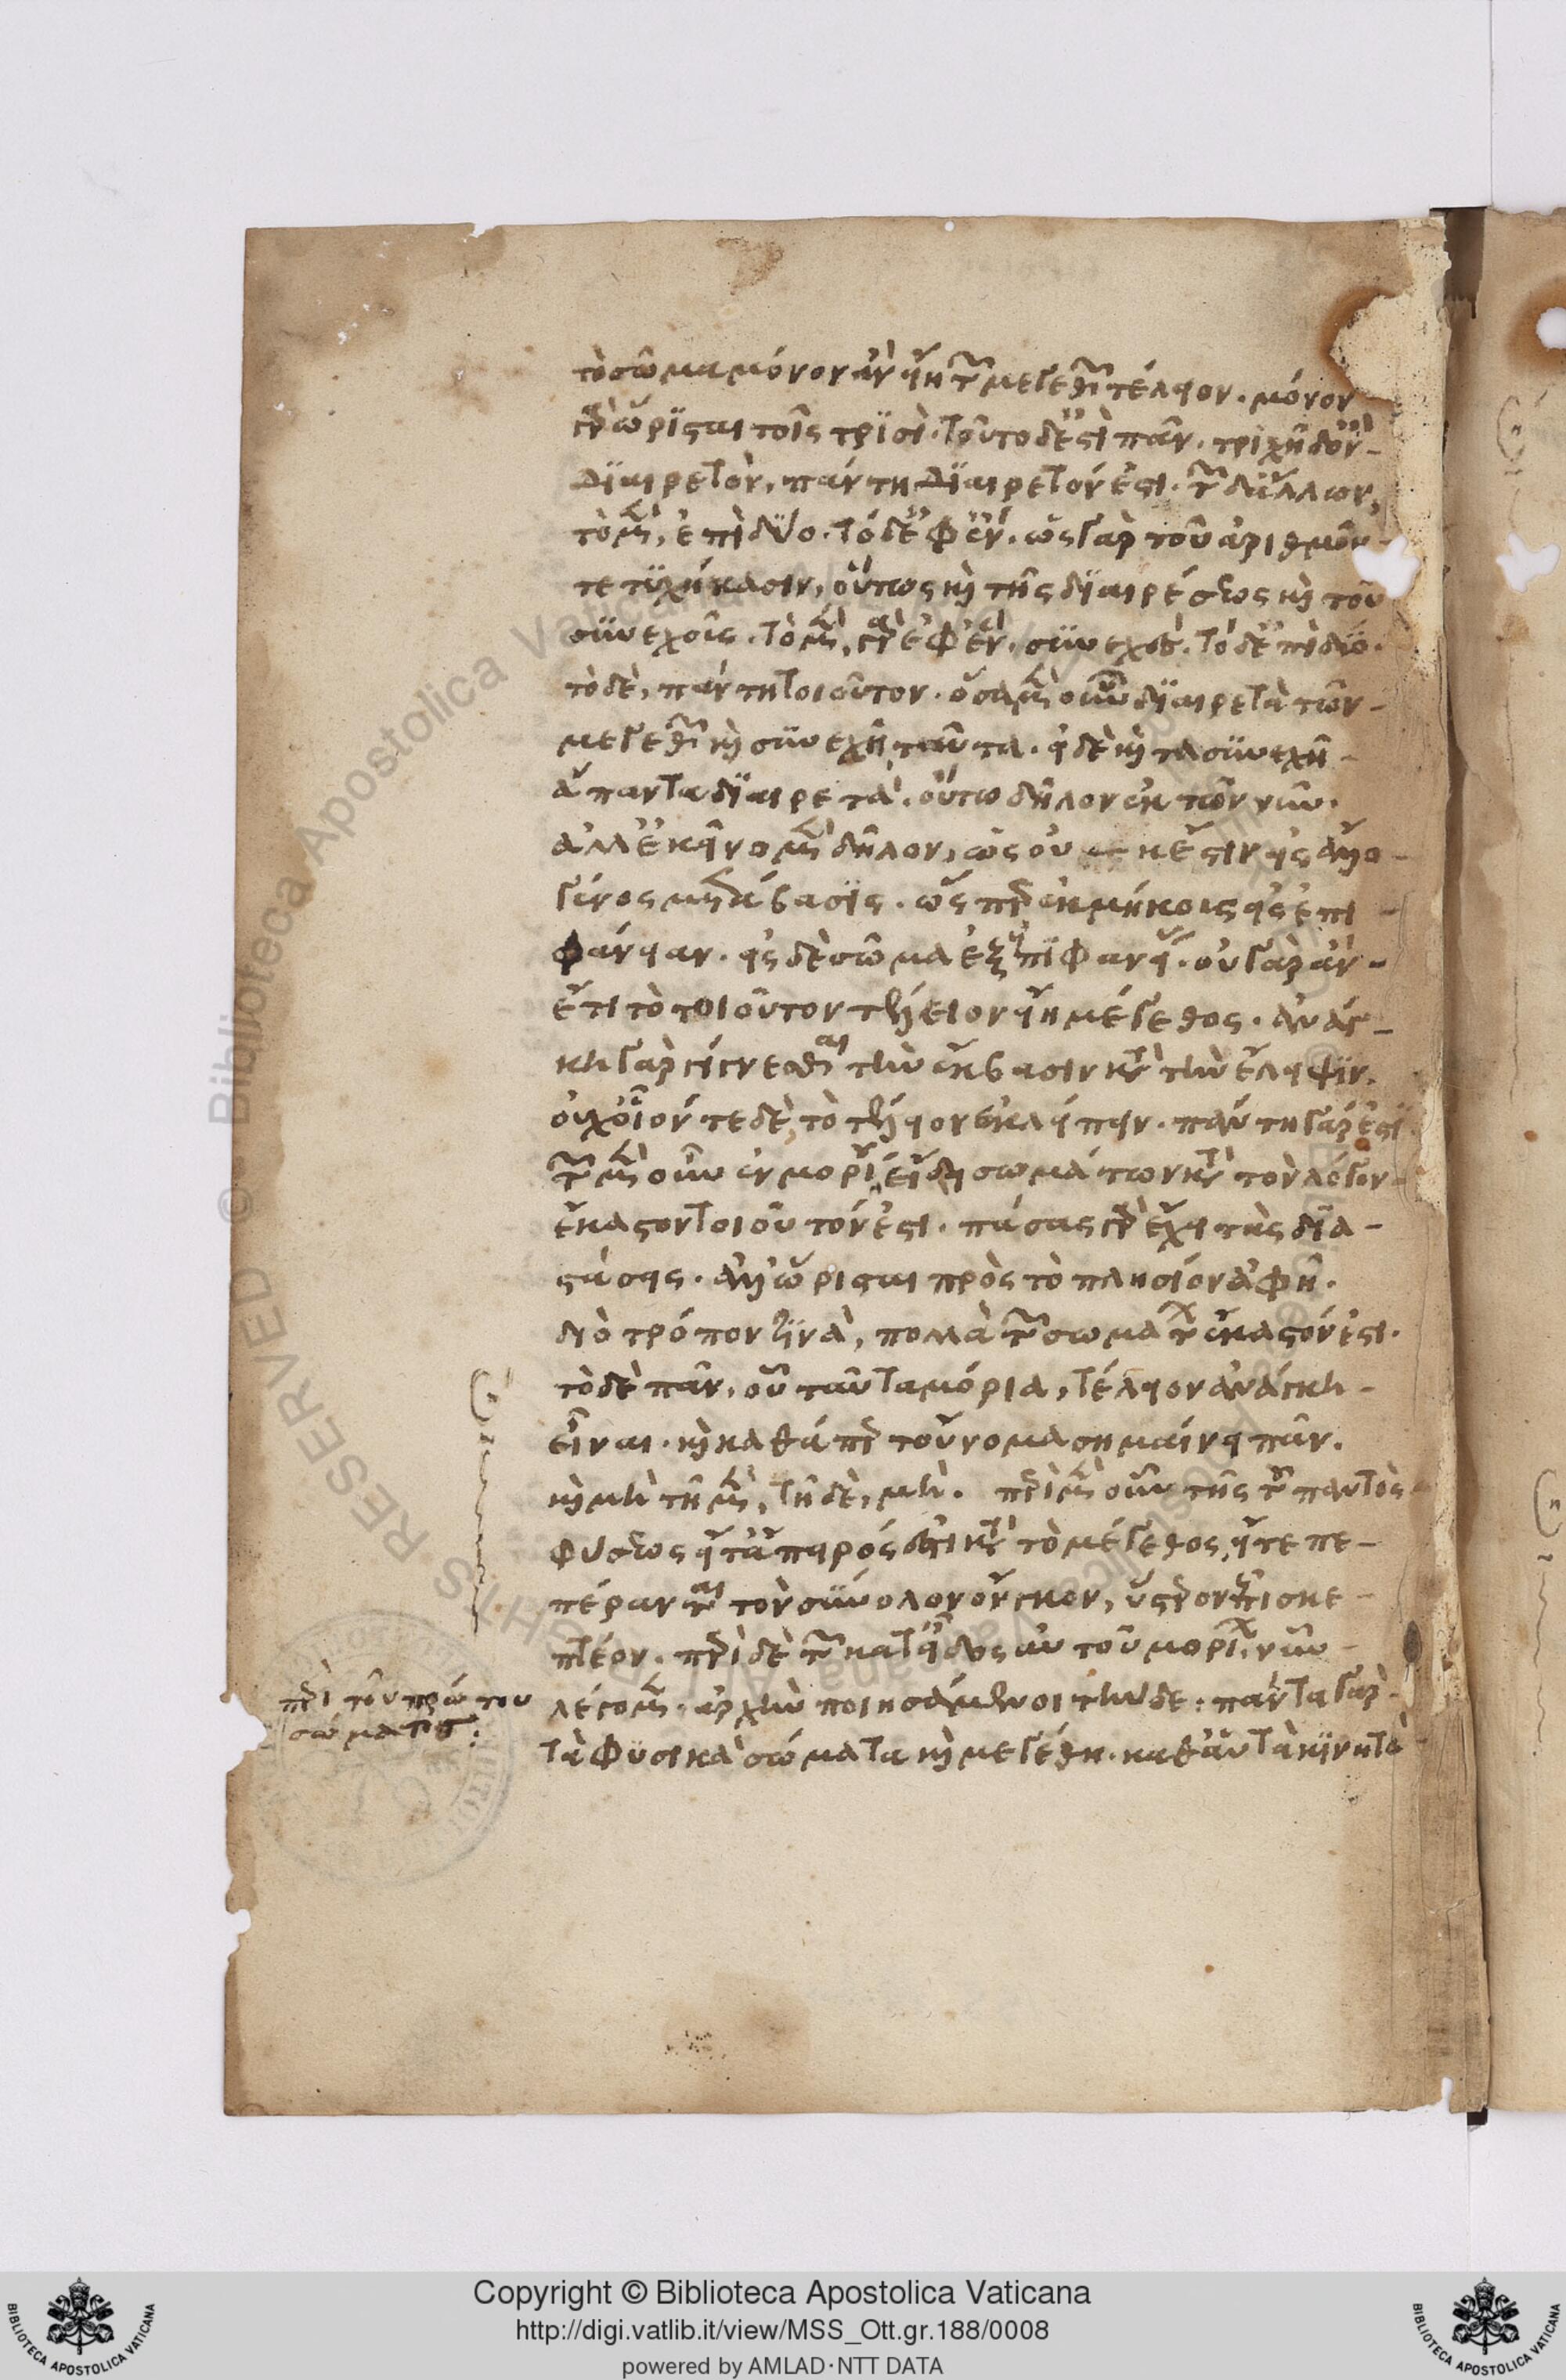 τὸ σῶμα μόνον ἂν εἴη τῶν μεγεθῶν τέλειον. μόνον
γὰρ ὥρισται τοῖς τρϊσί. τοῦτο δ' ἐστὶ πᾶν. τριχῆ δὲ ὂν
διαιρετὸν, πάντη διαιρετόν ἐστι. τῶν δ' ἄλλων,
τὸ μὲν, ἐπὶ δύο. τὸ δ' ἐφ' ἕν. ὡς γὰρ τοῦ ἀριθμοῦ
τετυχήκασιν, οὕτως καὶ τῆς διαιρέσεως καὶ τοῦ
συνεχοῦς. τὸ μὲν, γὰρ ἐφ' ἕν. συνεχὲς. τὸ δ' ἐπὶ δύο.
τὸ δὲ, πάντη τοιοῦτον. ὅσα μὲν οὖν διαιρετὰ τῶν
μεγεθῶν καὶ συνεχῆ ταῦτα. εἰ δὲ καὶ τὰ συνεχῆ
ἅπαντα διαιρετὰ. οὔπω δῆλον ἐκ τῶν νῦν.
ἀλλ' ἐκεῖνο μὲν δῆλον, ὡς οὐκ ἔστιν εἰς ἄλλο
γένος μετάβασις. ὥσπερ ἐκ μήκους εἰς ἐπι
φάνειαν. εἰς δὲ σῶμα ἐξ ἐπιφανείας. οὐ γὰρ ἂν
ἔτι τὸ τοιοῦτον τέλειον εἴη μέγεθος. ἀνάγ
κη γὰρ γίγνεσθαι τὴν ἔκβασιν κατὰ τὴν ἔλλειψιν.
οὐχ οἷόν τε δὲ, τὸ τέλειον ἐλλείπειν. πάντη γάρ ἐστι.
τῶν μὲν οὖν ἐν μορίου εἴδει σωμάτων κατὰ τὸν λόγον
ἕκαστον τοιοῦτόν ἐστι. πάσας γὰρ ἔχει τὰς δια
στάσεις. ἀλλ' ὥρισται πρὸς τὸ πλησίον ἁφῆ.
διὸ τρόπον τινὰ, πολλὰ τῶν σωμάτων ἕκαστόν ἐστι.
τὸ δὲ πᾶν, οὗ ταῦτα μόρια, τέλειον ἀνάγκη
εἶναι. καὶ καθάπερ τοὔνομα σημαίνει πᾶν.
καὶ μὴ τῆ μὲν, τῆ δὲ, μή. περὶ μὲν οὖν τῆς τοῦ παντὸς
φύσεως εἴτ' ἄπειρός ἐστι κατὰ τὸ μέγεθος, εἴτε πε
πέρανται τὸν σύνολον ὄγκον, ὕστερον ἐπισκε
πτέον. περὶ δὲ τῶν κατ' εἶδος αὐτοῦ μορίων νῦν
λέγομεν. ἀρχὴν ποιησάμενοι τήνδε: πάντα γὰρ
τὰ φυσικὰ σώματα καὶ μεγέθη. καθ' αὑτὰ κινητὰ
περὶ τοῦ πρώτου
σώματος:
Copyright © Biblioteca Apostolica Vaticana
http://digi.vatlib.it/view/MSS_Ott.gr.188/0008
powered by AMLAD·NTT DATA
BIBLIOTECA APOSTOLICA VATICANA
BIBLIOTECA APOSTOLICA VATICANA